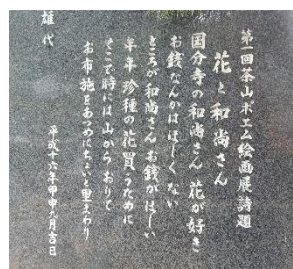 第一回茶山ポエム絵画展詩題
花と和尚さん
国分寺の和尚さん 花が好き
お銭なんかはほしくない
ところが和尚さんお銭がほしい
年年珍種の花買うために
そこで時には山からおりて
お布施をあつめにちょいと里まわり
平成十六年甲申九月吉日
雄代